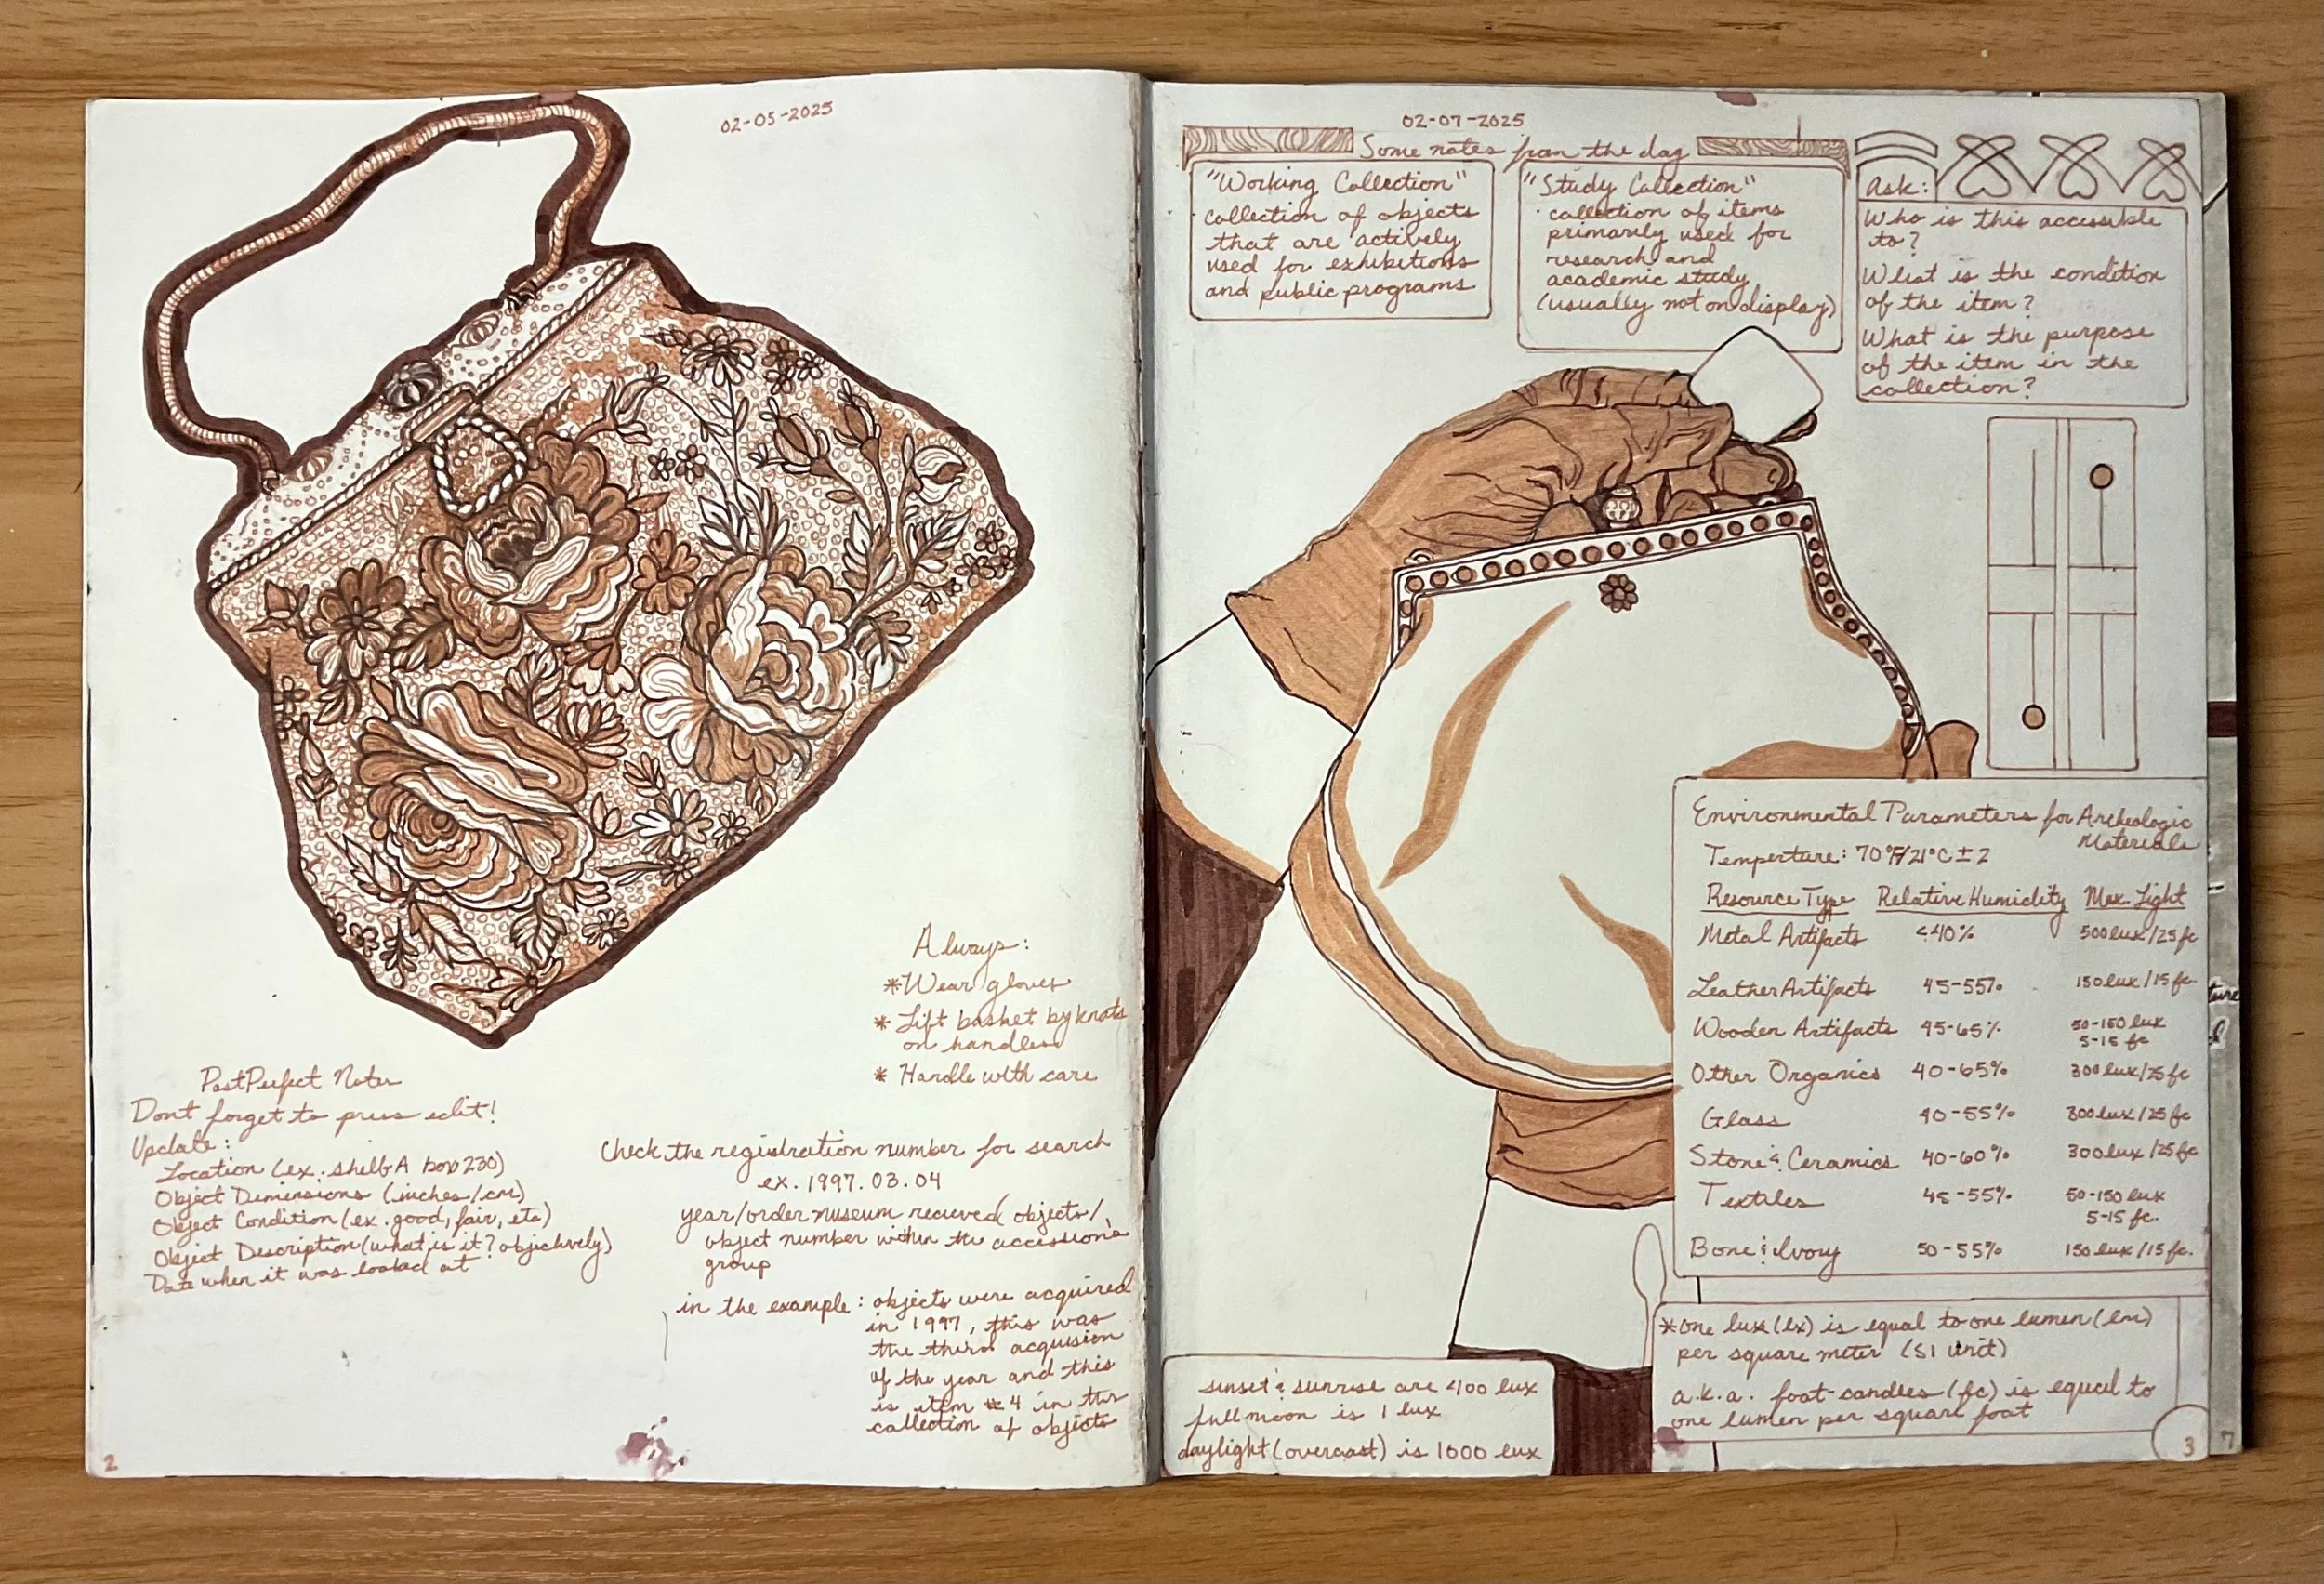 02-05-2025
Always:
*Wear gloves
* Lift basket by knots
on handles
* Handle with care
PastPerfect Notes
Dont forget to press edit!
Update:
Location (ex. shelf A box 230)
Object Dimensions (inches/cm)
Object Condition (ex. good, fair, etc)
Object Description (what is it? objectively)
Date when it was looked at
Check the registration number for search
ex. 1997.03.04
year/order museum recieved objects/
object number within the accession's
group
in the example: objects were acquired
in 1997, this was
the third acquision
of the year and this
is item #4 in this
collection of objects
2
02-07-2025
Some notes from the day
"Working Collection"
collection of objects
that are actively
used for exhibitions
and public programs
"Study Collection"
· collection of items
primarily used for
research and
academic study
(usually not on display)
Ask:
Who is this accessible
to?
What is the condition
of the item?
What is the purpose
of the item in the
collection?
Environmental Parameters for Archeologic
Materials
Temperture: 70°F/21°C ± 2
Resource Type Relative Humidity Max. Light
Metal Artifacts <40% 500 lux/25 fc
Leather Artifacts 45-55% 150 lux/15 fc.
Wooden Artifacts 45-65% 50-150 lux
5-15 fc
Other Organics 40-65% 300 lux/25 fc
Glass 40-55% 300 lux/25 fc
Stone & Ceramics 40-60% 300 lux/25 fc
Textiles 45-55% 50-150 lux
5-15 fc.
Bone & Ivory 50-55% 150 lux/15 fc.
*one lux (lx) is equal to one lumen (lm)
per square meter (SI unit)
a.k.a. foot-candles (fc) is equal to
one lumen per square foot
sunset & sunrise are 400 lux
full moon is 1 lux
daylight (overcast) is 1000 lux
3
7